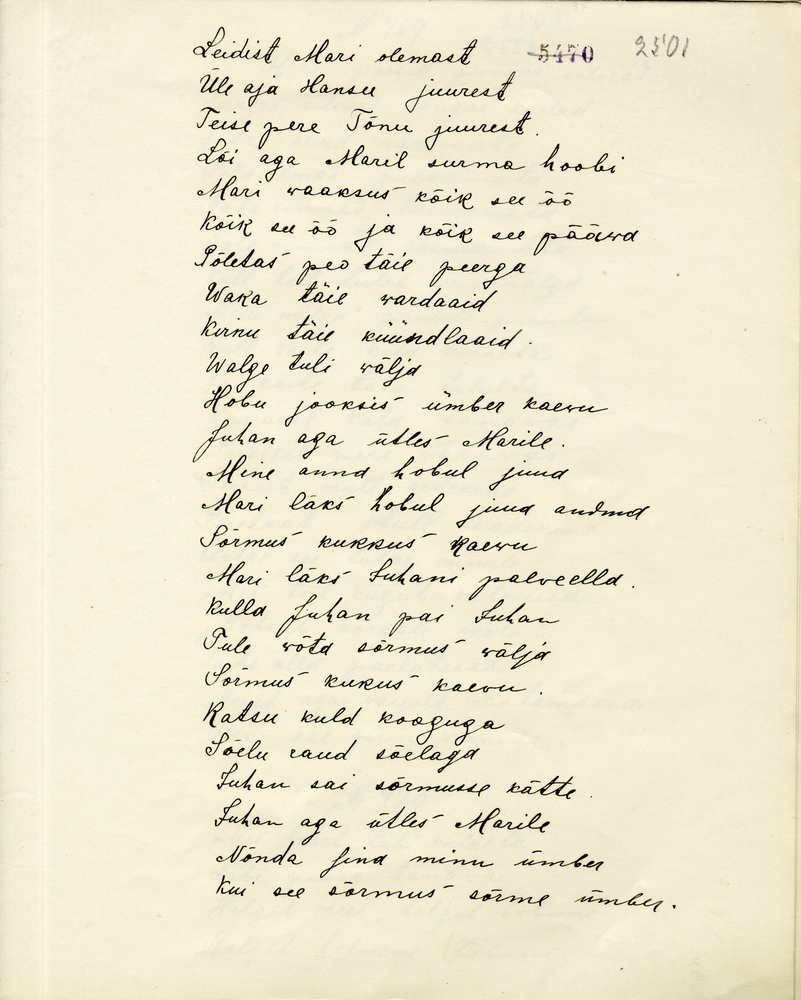 Leidist Mari olemast 5470 2501
Üle aja Hansu juurest
Teise pere Tõnu juurest.
Lõi aga Maril surma hoobi
Mari waaksus kõik see öö
Kõik see öö ja kõik see pääwa
Põletas peo täie peerga
Waka täie wardaaid
Kirnu täie küündlaaid.
Walge tuli wälja
Hobu jooksis ümber kaewu
Juhan aga ütles Marile.
Mine anna hobul juua
Mari läks hobul juua andma
Sõrmus kukkus kaewu
Mari läks Juhani palveella.
Kulla Juhan pai Juhan
Tule wõta sõrmus wälja
Sõrmus kukus kaewu.
Katsu kuld kooguga
Sõelu raud sõelaga
Juhan sai sõrmusse kätte.
Juhan aga ütles Marile
Nõnda sind minu ümber
Kui see sõrmus sõrme ümber.